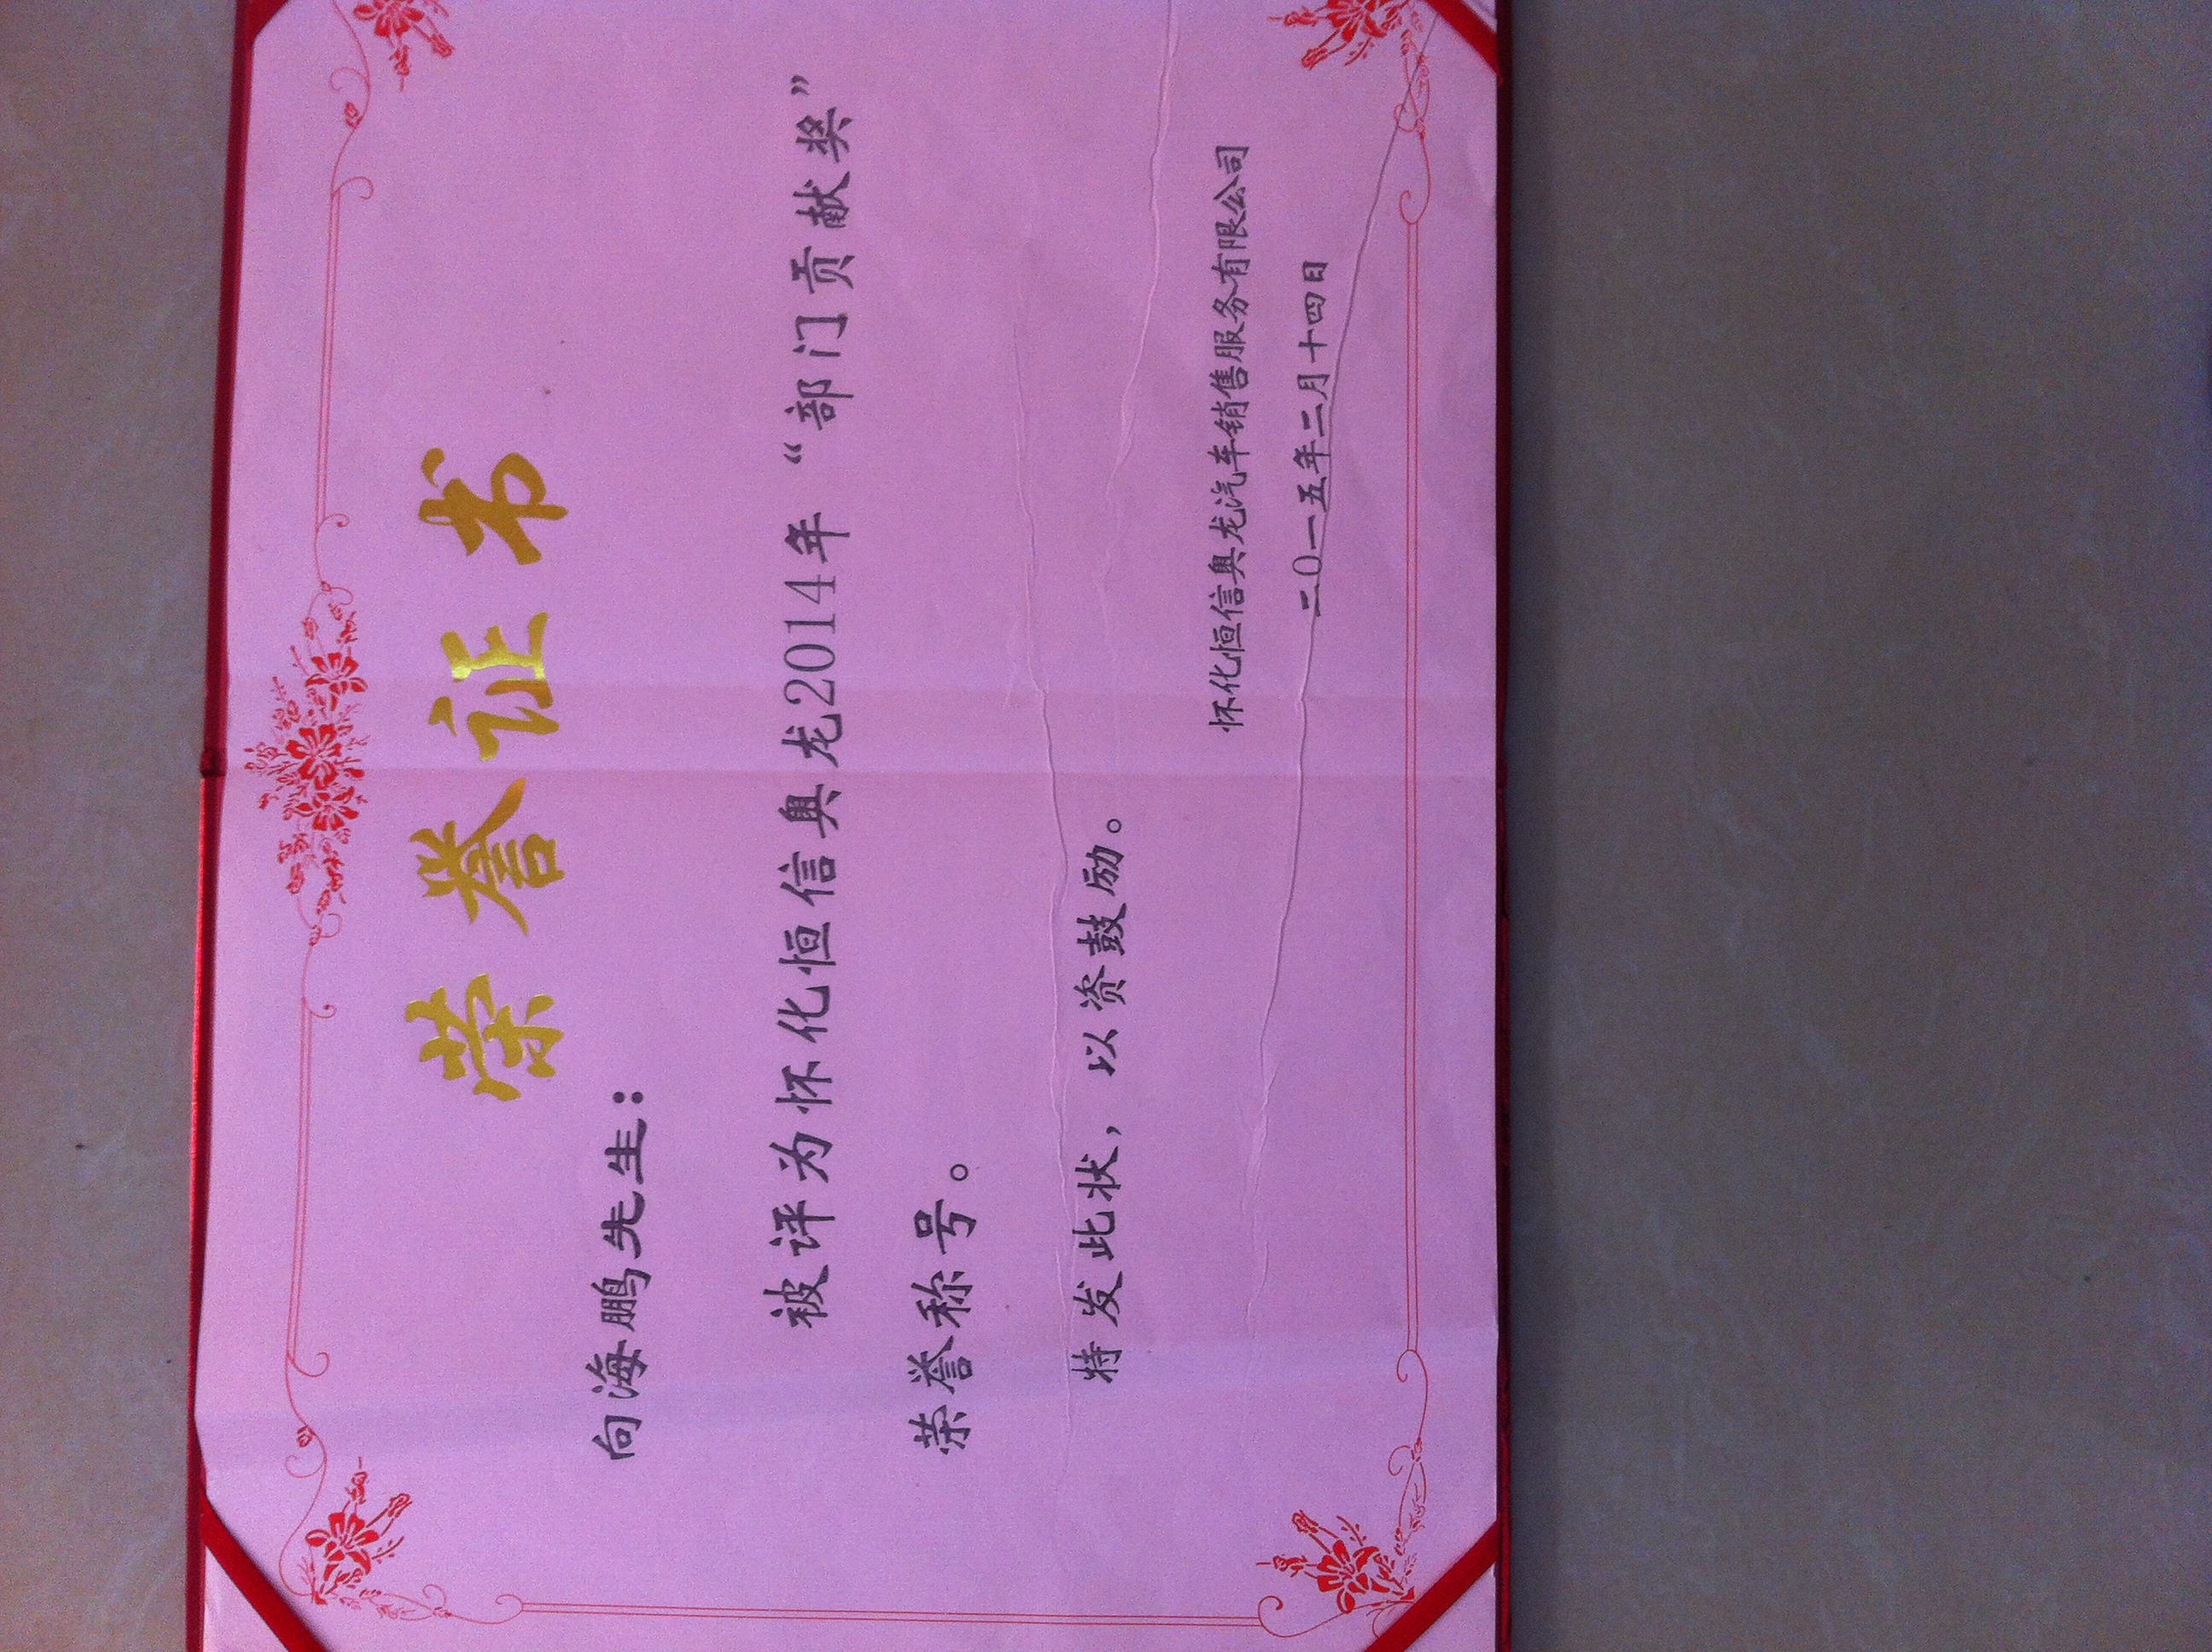 荣誉证书
向海鹏先生：
被评为怀化恒信奥龙2014年“部门贡献奖”
荣誉称号。
特发此状，以资鼓励。
怀化恒信奥龙汽车销售服务有限公司
二0一五年二月十四日